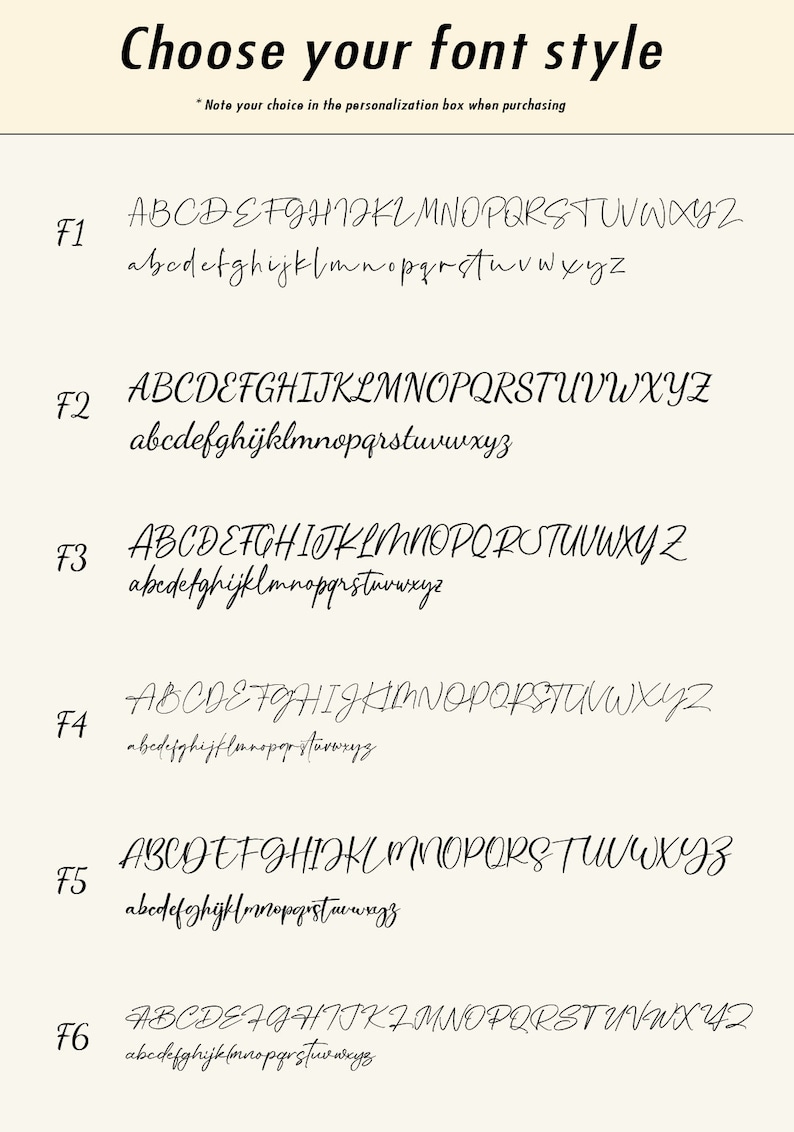 Choose your font style
* Note your choice in the personalization box when purchasing
F1
ABCDEFGHIJKLMNOPQRSTUVWXYZ
abcdefghijklmnopqrstuvwxyz
F2
ABCDEFGHIJKLMNOPQRSTUVWXYZ
abcdefghijklmnopqrstuvwxyz
F3
ABCDEFGHIJKLMNOPQRSTUVWXYZ
abcdefghijklmnopqrstuvwxyz
F4
ABCDEFGHIJKLMNOPQRSTUVWXYZ
abcdefghijklmnopqrstuvwxyz
F5
ABCDEFGHIJKLMNOPQRSTUVWXYZ
abcdefghijklmnopqrstuvwxyz
F6
ABCDEFGHIJKLMNOPQRSTUVWXYZ
abcdefghijklmnopqrstuvwxyz